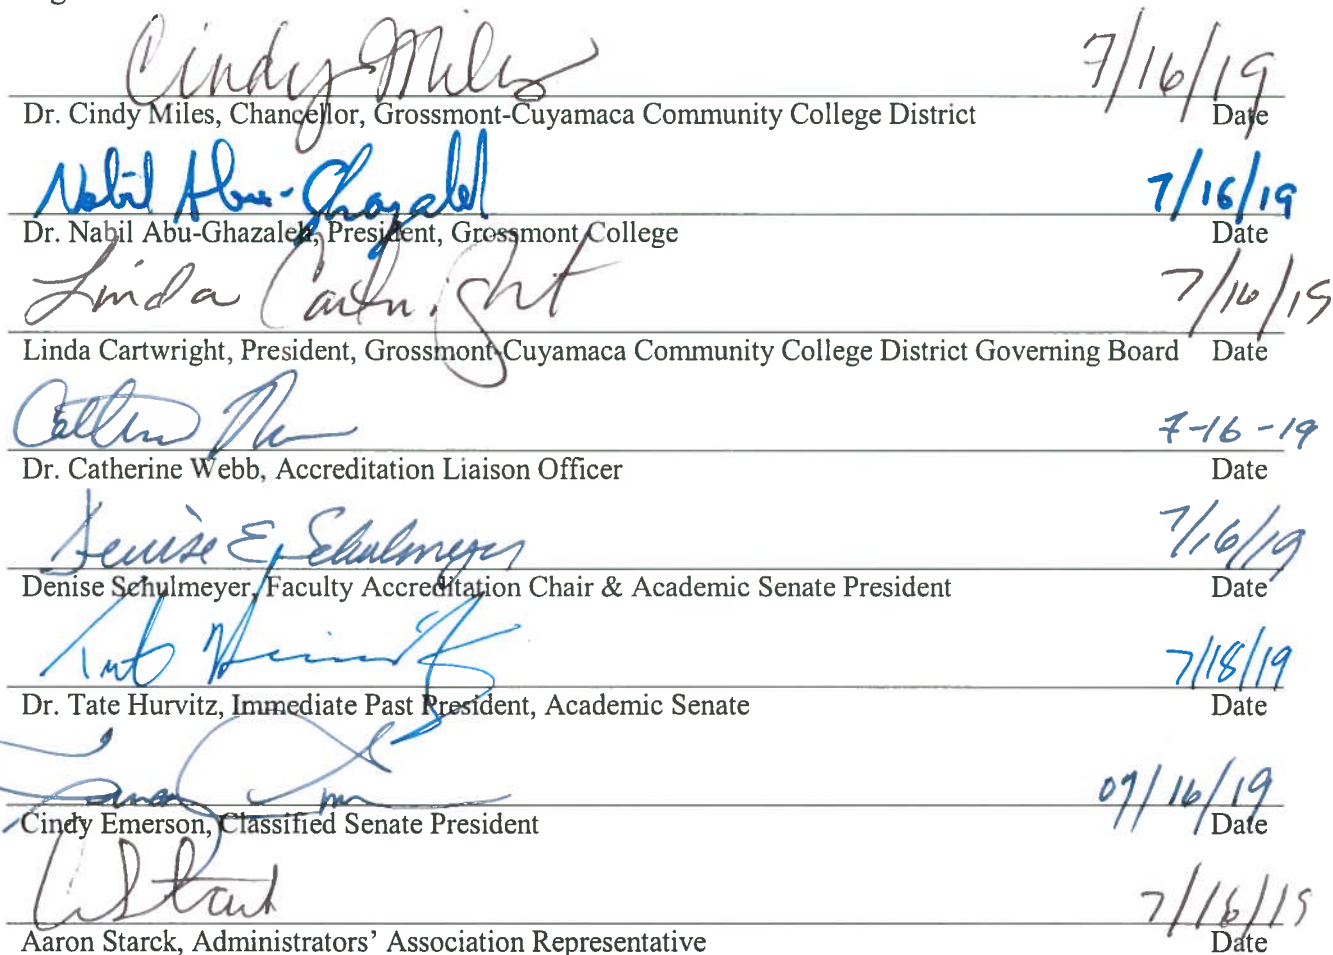 Cindy Miles 7/16/19
Dr. Cindy Miles, Chancellor, Grossmont-Cuyamaca Community College District Date
Nabil Abu-Ghazaleh 7/16/19
Dr. Nabil Abu-Ghazaleh, President, Grossmont College Date
Linda Cartwright 7/16/19
Linda Cartwright, President, Grossmont-Cuyamaca Community College District Governing Board Date
7-16-19
Dr. Catherine Webb, Accreditation Liaison Officer Date
Denise E Schulmeyer 7/16/19
Denise Schulmeyer, Faculty Accreditation Chair & Academic Senate President Date
7/18/19
Dr. Tate Hurvitz, Immediate Past President, Academic Senate Date
/16/19
Cindy Emerson, Classified Senate President Date
7/16/19
Aaron Starck, Administrators' Association Representative Date